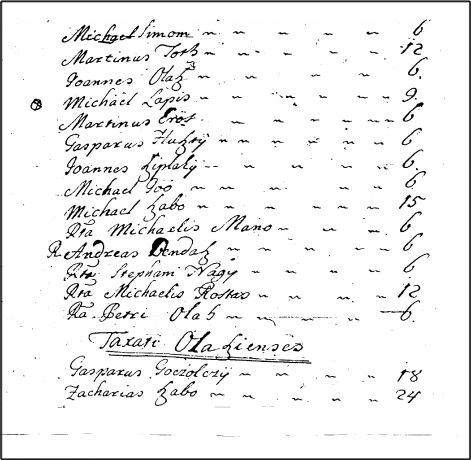 Michael Simom " " " " " 6
Martinus Toth " " " " " 12
Joannes Olah " " " " 6.
Michael Lapis " " " " " 9.
Martinus Erös " " " " 6
Gasparus " " " " 6.
Joannes " " " " 6.
Michael Joó " " " " " 6
Michael Zabo " " " " " 15
Rta Michaelis Mano " " " 6
R Andreas " " " " 6
Rta Stephani Nagy " " " 6
Rta Michaelis Rostas " " " " 12
Rta Petri Olah " " 6.
Taxati
Gasparus " " " " 18
Zacharias Zabo " " " " 24